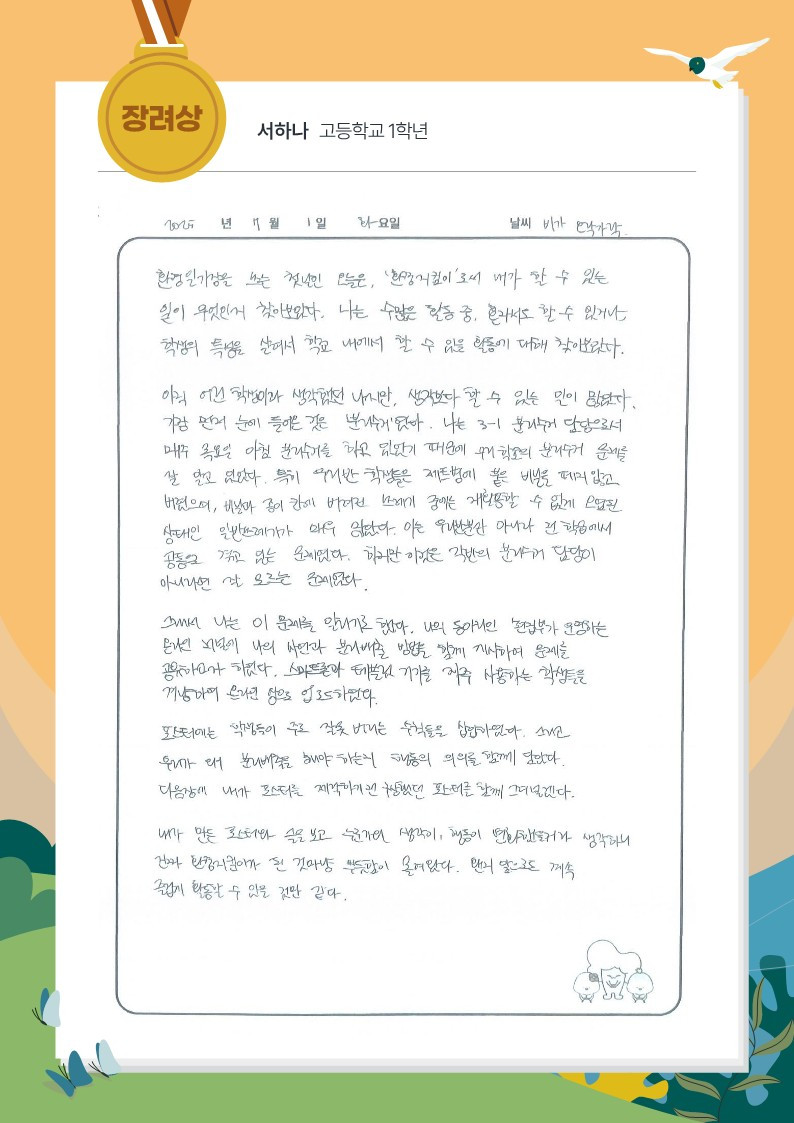 장려상
서하나 고등학교 1학년
2025 년 7 월 1 일 화요일 날씨 비가 오락가락
환경일기장을 쓰는 첫날인 오늘은, '환경지킴이'로서 내가 할 수 있는
일이 무엇인지 찾아보았다. 나는 수많은 활동 중, 혼자서도 할 수 있거나
학생의 특성을 살려서 학교 내에서 할 수 있을 활동에 대해 찾아보았다.
아직 어린 학생이라 생각했던 나지만, 생각보다 할 수 있는 일이 많았다.
가장 먼저 눈에 들어온 것은 '분리수거'였다. 나는 3-1 분리수거 담당으로서
매주 목요일 아침 분리수거를 하고 있었기 때문에 우리 학교의 분리수거 문제를
잘 알고 있었다. 특히 우리반 학생들은 페트병에 붙은 비닐을 떼지 않고
버렸으며, 비닐과 종이 칸에 버려진 쓰레기 중에는 재활용할 수 없게 오염된
상태인 일반쓰레기가 매우 많았다. 이는 우리반뿐만 아니라 전 학급에서
공통으로 겪고 있는 문제였다. 하지만 이것은 각반의 분리수거 담당이
아니라면 잘 모르는 문제였다.
그래서 나는 이 문제를 알리기로 했다. 나의 동아리인 편집부가 운영하는
온라인 지면에 나의 사연과 분리배출 방법을 함께 게시하여 문제를
공유하고자 하였다. 스마트폰과 태블릿 기기를 자주 사용하는 학생들을
겨냥하여 온라인 상으로 업로드하였다.
포스터에는 학생들이 주로 잘못 버리는 습관들을 삽입하였다. 그리고
우리가 왜 분리배출을 해야 하는지 행동의 의의를 함께 담았다.
다음장에 내가 포스터를 제작하기전 구상했던 포스터를 함께 그려넣겠다.
내가 만든 포스터와 글을 보고 누군가의 생각이, 행동이 변화할거라 생각하니
진짜 환경지킴이가 된 것처럼 뿌듯함이 몰려왔다. 왠지 앞으로도 계속
즐겁게 활동할 수 있을 것만 같다.